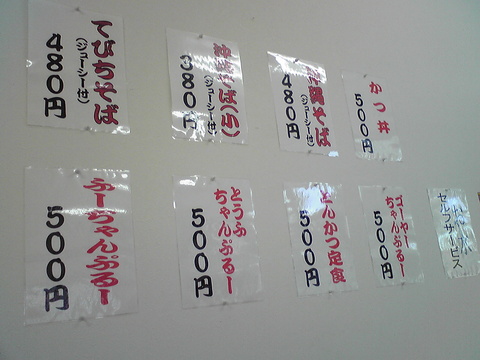 てびちそば
(ジューシー付)
480円
沖縄そば(小)
(ジューシー付)
380円
沖縄そば
(ジューシー付)
480円
かつ丼
500円
ふーちゃんぷるー
500円
とうふ
ちゃんぷるー
500円
とんかつ定食
500円
ゴーヤー
ちゃんぷるー
500円
セルフサービス